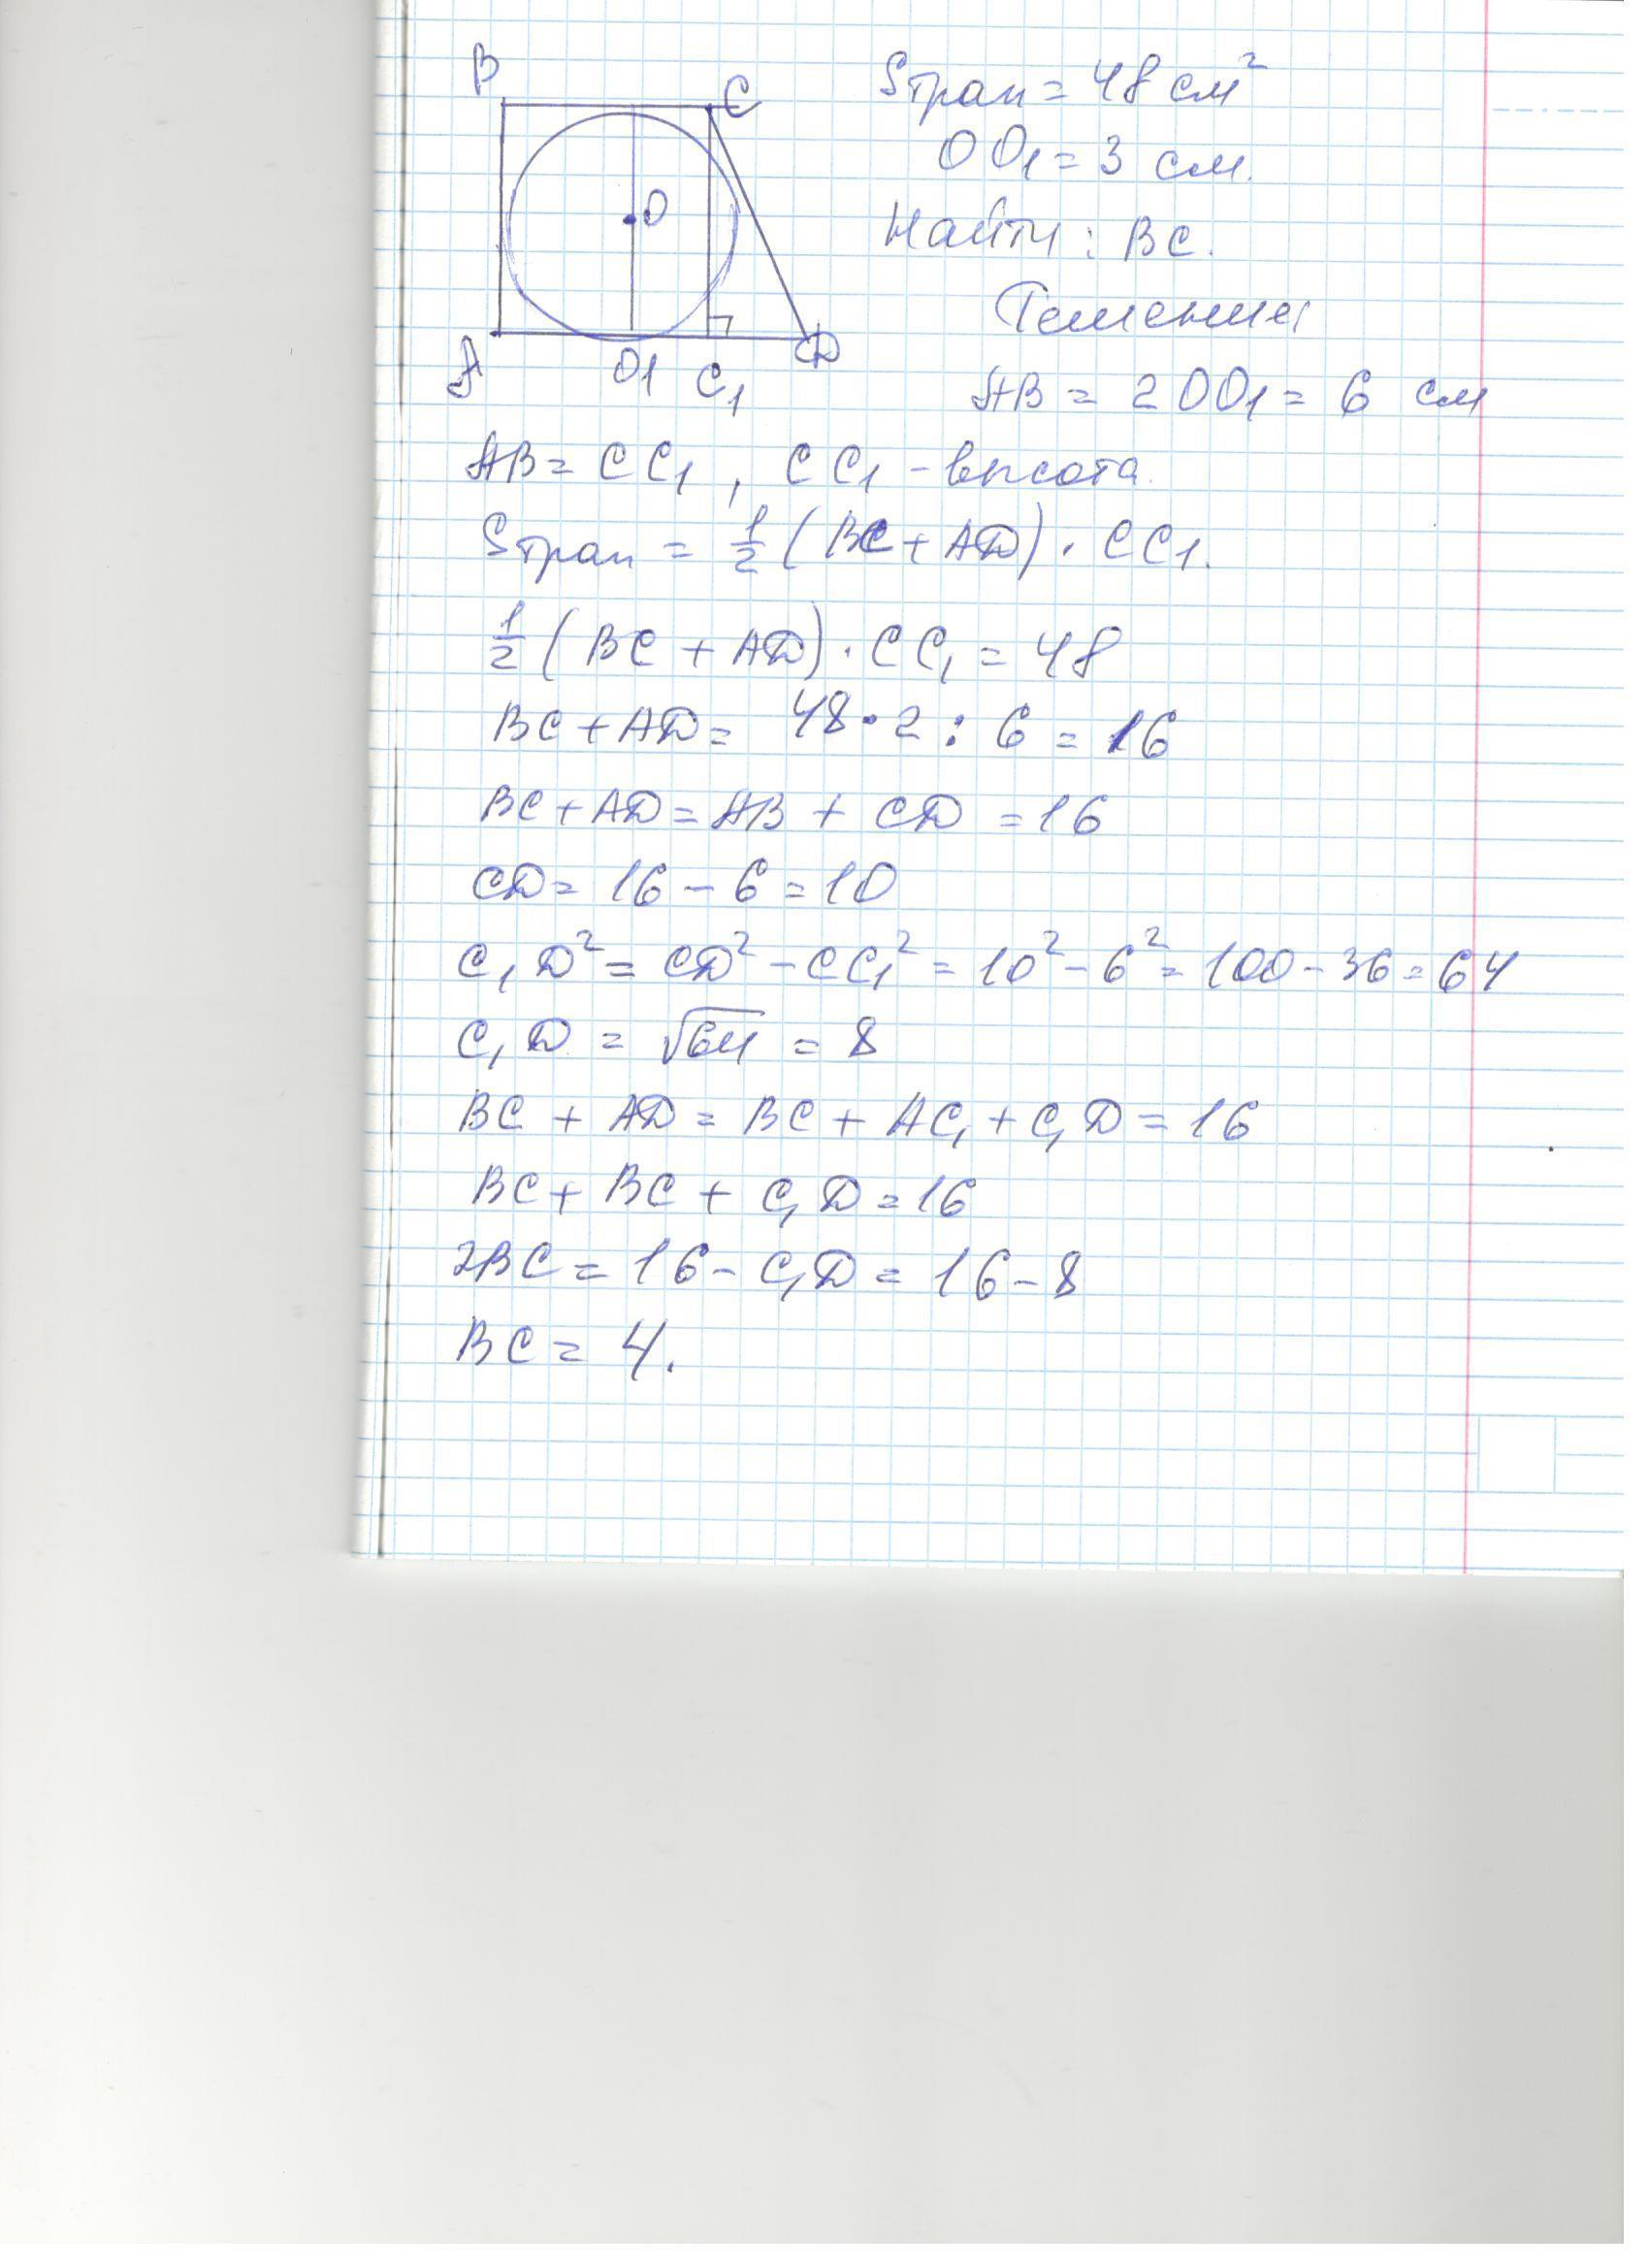 B
C
Sтрап = 48 см²
OO₁ = 3 см.
O
Найти: BC.
Решение
A
O1
C₁
D
AB = 2OO₁ = 6 см
AB = CC₁, CC₁ - высота.
Sтрап = 1/2 (BC + AD) · CC1.
1/2 (BC + AD) · CC₁ = 48
BC + AD = 48 · 2 : 6 = 16
BC + AD = AB + CD = 16
CD = 16 - 6 = 10
C₁D² = CD² - CC₁² = 10² - 6² = 100 - 36 = 64
C₁D = √64 = 8
BC + AD = BC + AC₁ + C₁D = 16
BC + BC + C₁D = 16
2BC = 16 - C₁D = 16 - 8
BC = 4.